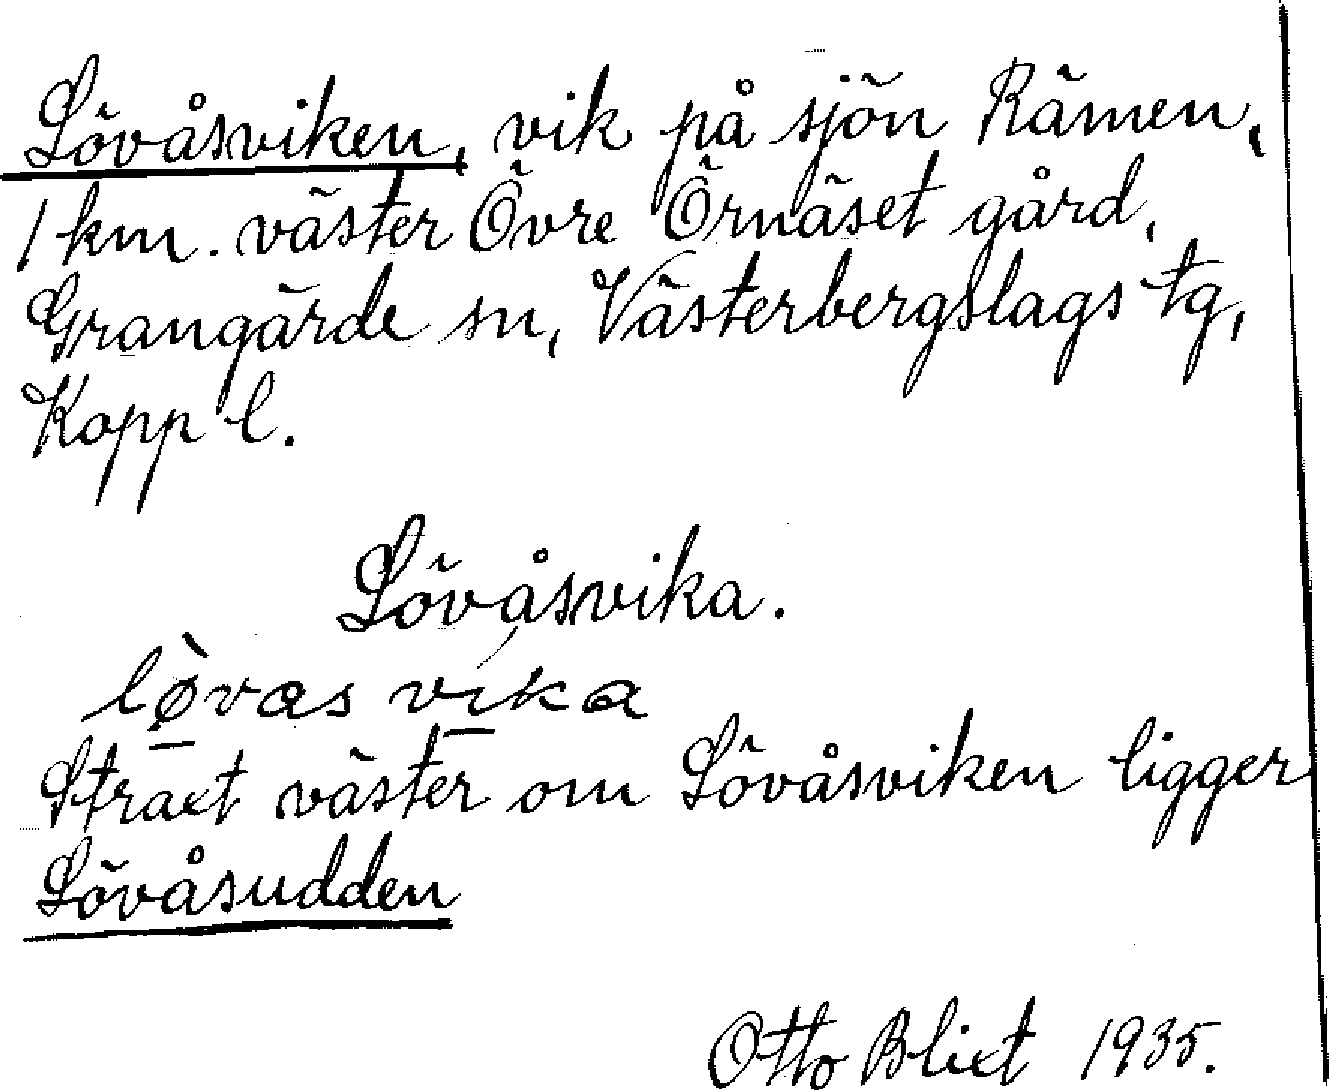 Lövåsviken, vik på sjön Rämen,
1 km. väster Övre Örnäset gård,
Grangärde sn, Västerbergslags tg,
Kopp l.
Lövåsvika.
lø̀vas vika
Straxt väster om Lövåsviken ligger
Lövåsudden
Otto Blixt 1935.